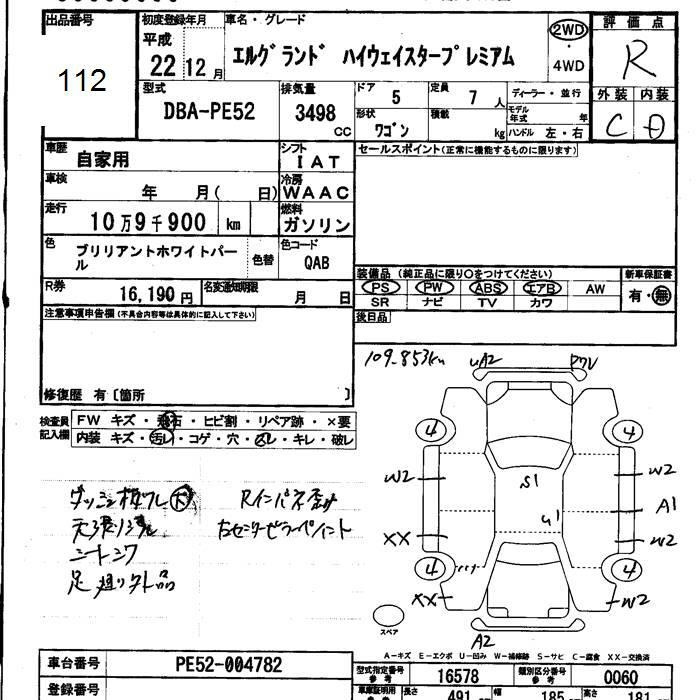 出品番号
112
初度登録年月
平成
22 12月
車名・グレード
エルグランド ハイウェイスタープレミアム
2WD
・
4WD
評価点
R
型式
DBA-PE52
排気量
3498
cc
ドア
5
定員
7人
ディーラー・並行
形状
ワゴン
積載
kg
モデル年式
年
ハンドル 左・右
外装 内装
C D
車歴
自家用
シフト
IAT
セールスポイント(正常に機能するものに限ります)
車検
年 月( 日)
冷房
WAAC
走行
10万9千900 km
燃料
ガソリン
色
ブリリアントホワイトパール
色替
色コード
QAB
装備品 (純正品に限り○をつけてください)
新車保証書
PS PW ABS エアB AW
SR ナビ TV カワ
有・無
R券
16,190円
名変通知期限
月 日
後日品
注意事項申告欄(不具合内容等は具体的に記入して下さい)
修復歴 有〔箇所 〕
109,853km
検査員
記入欄
FW キズ・飛石・ヒビ割・リペア跡・×要
内装 キズ・汚レ・コゲ・穴・スレ・キレ・破レ
UA2
4 4
W2 W2
S1
U1
A1
XX W2
4 4
XX W2
A2
スペア
シートニク
足廻り外品
Rインパネ歪み
右センターピラーペイント
A-キズ E-エクボ U-凹み W-補修跡 S-サビ C-腐食 XX-交換済
車台番号
PE52-004782
型式指定番号
参考
16578
類別区分番号
参考
0060
登録番号
車庫証明用
長さ
491
幅
185
高さ
181